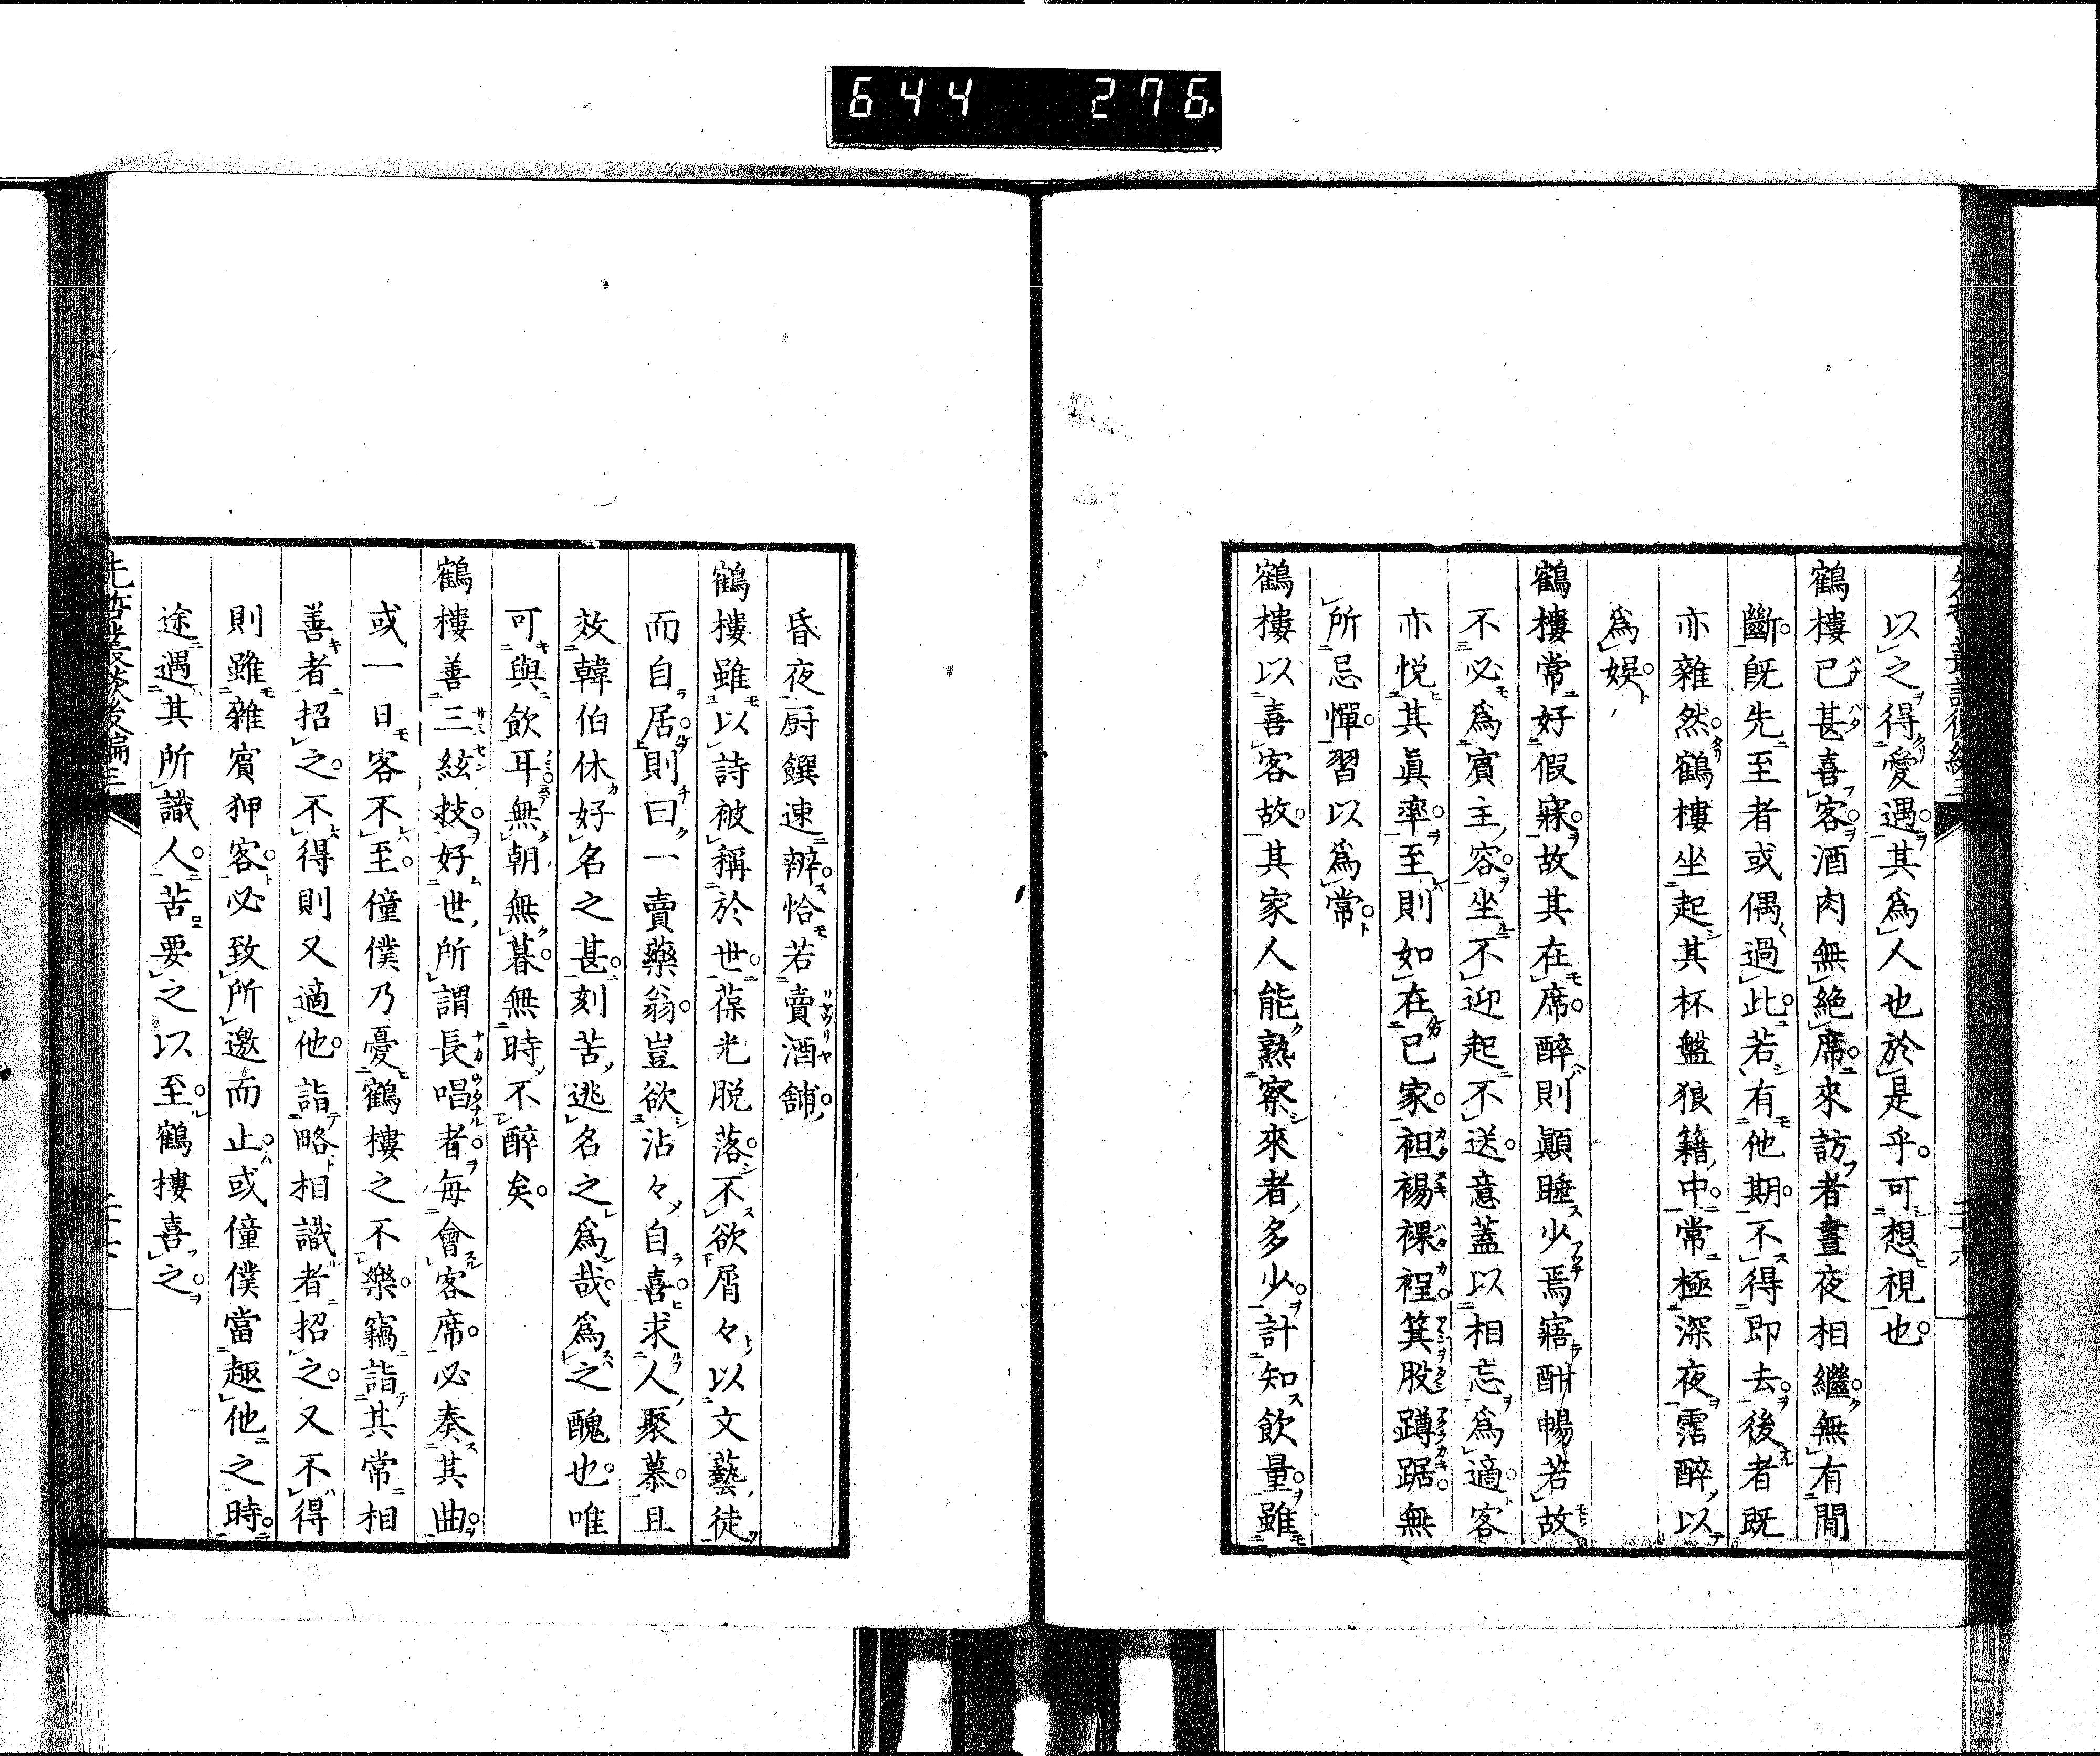 644 276
以之得愛遇其爲人也於是乎可想視也
鶴樓已甚喜客酒肉無絶席來訪者晝夜相繼無有間
斷旣先至者或偶過此若有他期不得即去後者既
亦雜然鶴樓坐起其杯盤狼籍中常極深夜霑醉以
爲娯
鶴樓常好假寐故其在席醉則顚睡少焉寤酣暢若故
不必爲賓主容坐不迎起不送意蓋以相忘爲適客
亦悦其眞率至則如在己家袒裼裸裎箕股蹲踞無
所忌憚習以爲常
鶴樓以喜客故其家人能熟察來者多少計知飮量雖
昏夜厨饌速辨恰若賣酒舖
鶴樓雖以詩被稱於世葆光脱落不欲屑々以文藝徒
而自居則曰一賣藥翁豈欲沾々自喜求人聚慕且
效韓伯休好名之甚刻苦逃名之爲哉爲之醜也唯
可與飮耳無朝無暮無時不醉矣
鶴樓善三絃技好世所謂長唱者毎會客席必奏其曲
或一日客不至僮僕乃憂鶴樓之不樂竊詣其常相
善者招之不得則又適他詣略相識者招之又不得
則雖雜賓狎客必致所邀而止或僮僕當趣他之時
途遇其所識人苦要之以至鶴樓喜之
先哲叢談後編三